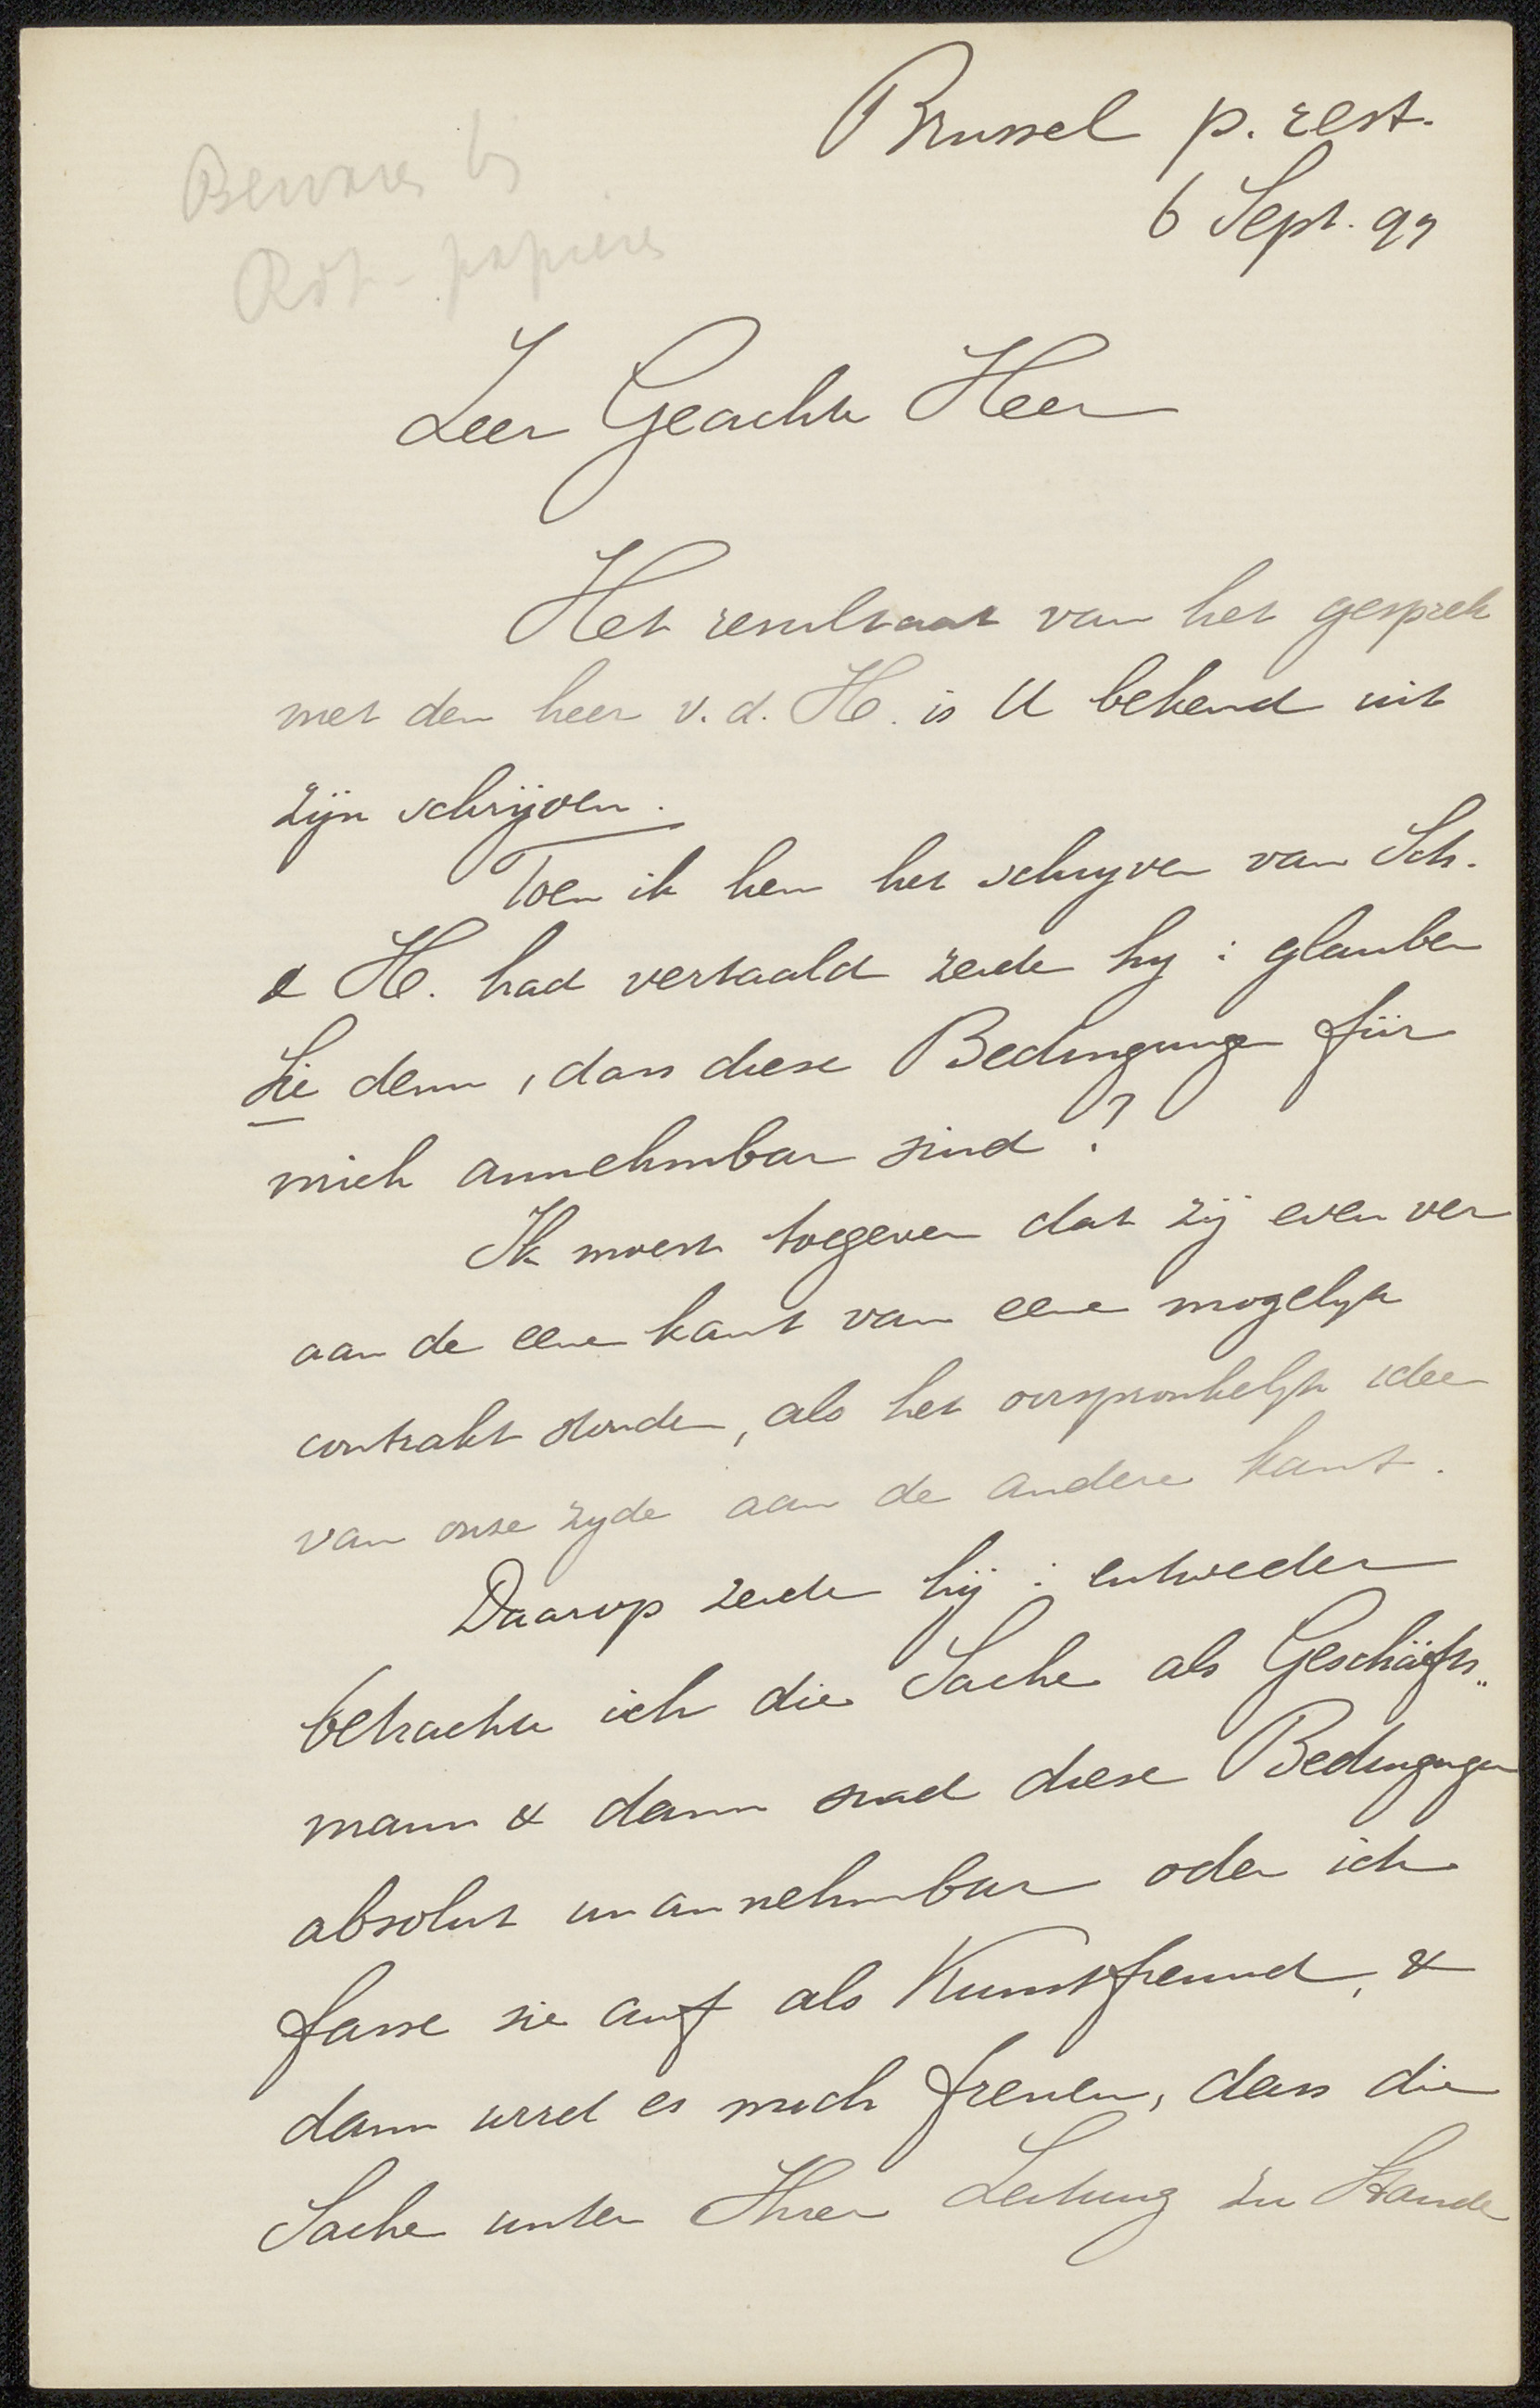 Brussel p. rest.
6 Sept. 99
Bewaren bij
Rdt-papieren
Zeer Geachte Heer
Het resultaat van het gesprek
met den heer v. d. H. is U bekend uit
zijn schrijven.
Toen ik hem het schryven van Sch.
& H. had vertaald zeide hy : glauben
Sie denn, dass diese Bedingungen für
mich annehmbar sind?
Ik moest toegeven dat zij even ver
aan de eene kant van eene mogelyk
contrakt stonden, als het oorspronkelyk idee
van onze zyde aan de andere kant.
Daarop zeide hij : entweder
betrachte ich die Sache als Geschäfts„
mann & dann sind diese Bedingungen
absolut unannehmbar oder ich
fasse sie auf als Kunstfreund, &
dann wird es mich freuen, dass die
Sache unter Ihrer Leitung zu Stande